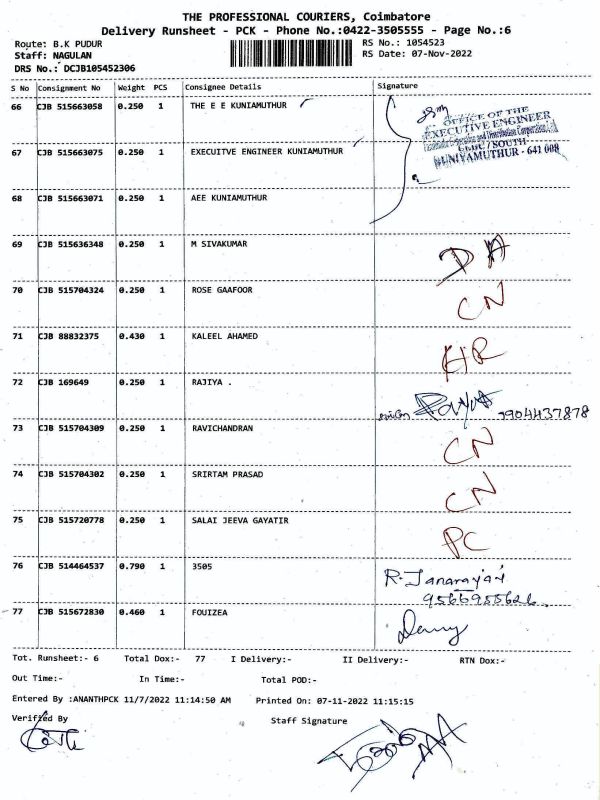 THE PROFESSIONAL COURIERS, Coimbatore
Delivery Runsheet - PCK - Phone No.:0422-3505555 - Page No.:6
Route: B.K PUDUR RS No.: 1054523
Staff: NAGULAN RS Date: 07-Nov-2022
DRS No.: DCJB105452306
S No Consignment No Weight PCS Consignee Details Signature
66 CJB 515663058 0.250 1 THE E E KUNIAMUTHUR
OFFICE OF THE
EXECUTIVE ENGINEER
67 CJB 515663075 0.250 1 EXECUITVE ENGINEER KUNIAMUTHUR
/ SOUTH
KUNIYAMUTHUR - 641 008
68 CJB 515663071 0.250 1 AEE KUNIAMUTHUR
69 CJB 515636348 0.250 1 M SIVAKUMAR DA
70 CJB 515704324 0.250 1 ROSE GAAFOOR CN
71 CJB 88832375 0.430 1 KALEEL AHAMED HR
72 CJB 169649 0.250 1 RAJIYA . 7904437878
73 CJB 515704309 0.250 1 RAVICHANDRAN CN
74 CJB 515704302 0.250 1 SRIRTAM PRASAD CN
75 CJB 515720778 0.250 1 SALAI JEEVA GAYATIR PC
76 CJB 514464537 0.790 1 3505 R. Janarayan
9566955626
77 CJB 515672830 0.460 1 FOUIZEA
Tot. Runsheet:- 6 Total Dox:- 77 I Delivery:- II Delivery:- RTN Dox:-
Out Time:- In Time:- Total POD:-
Entered By :ANANTHPCK 11/7/2022 11:14:50 AM Printed On: 07-11-2022 11:15:15
Verified By Staff Signature